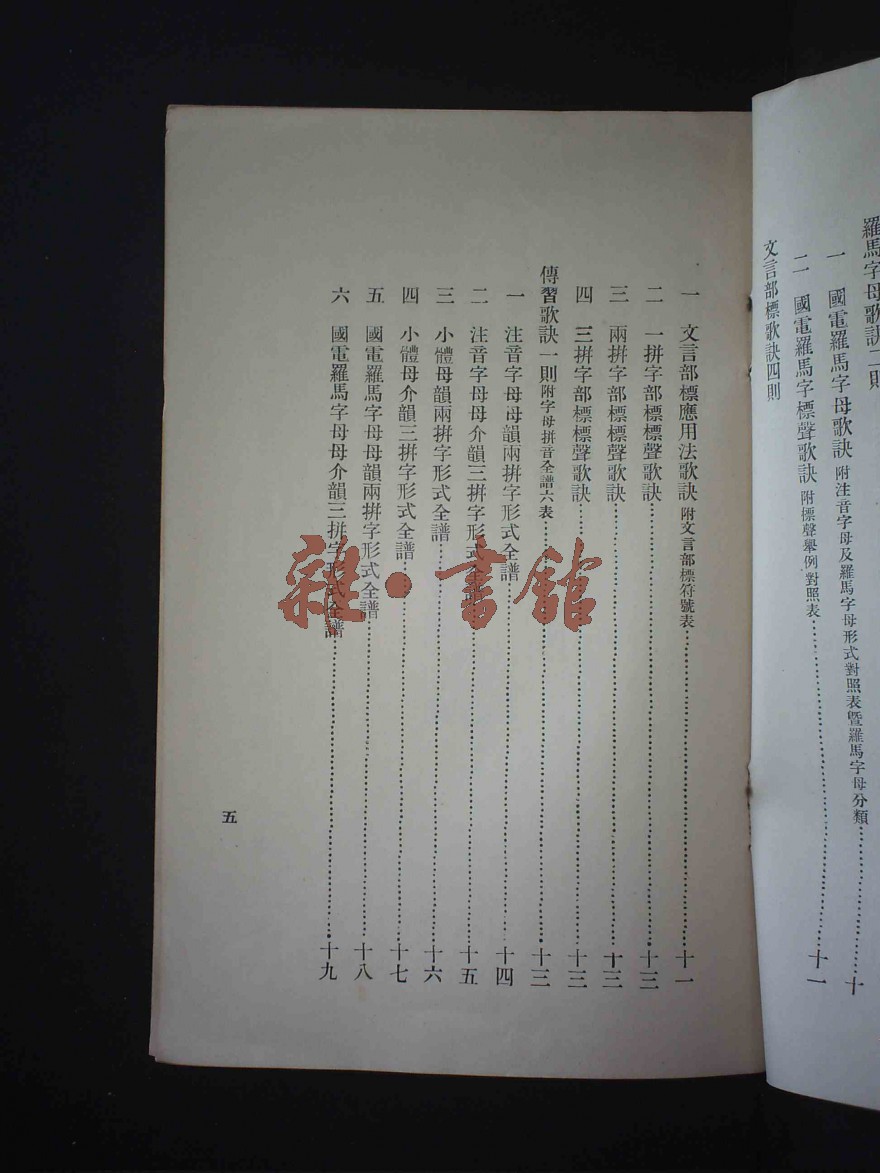 羅馬字母歌訣二則
一 國電羅馬字母歌訣 附注音字母及羅馬字母形式對照表暨羅馬字母分類……十
二 國電羅馬字標聲歌訣 附標聲舉例對照表……十一
文言部標歌訣四則
一 文言部標應用法歌訣 附文言部標符號表……十一
二 一拼字部標標聲歌訣……十三
三 兩拼字部標標聲歌訣……十三
四 三拼字部標標聲歌訣……十三
傳習歌訣一則 附字母拼音全譜六表……十三
一 注音字母母韻兩拼字形式全譜……十四
二 注音字母母介韻三拼字形式全譜……十五
三 小體母韻兩拼字形式全譜……十六
四 小體母介韻三拼字形式全譜……十七
五 國電羅馬字母母韻兩拼字形式全譜……十八
六 國電羅馬字母母介韻三拼字形式全譜……十九
五
雜·書館